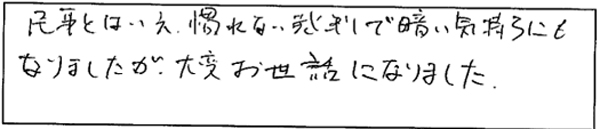 民事とはいえ、慣れない裁判で暗い気持ちにも
なりましたが、大変お世話になりました.